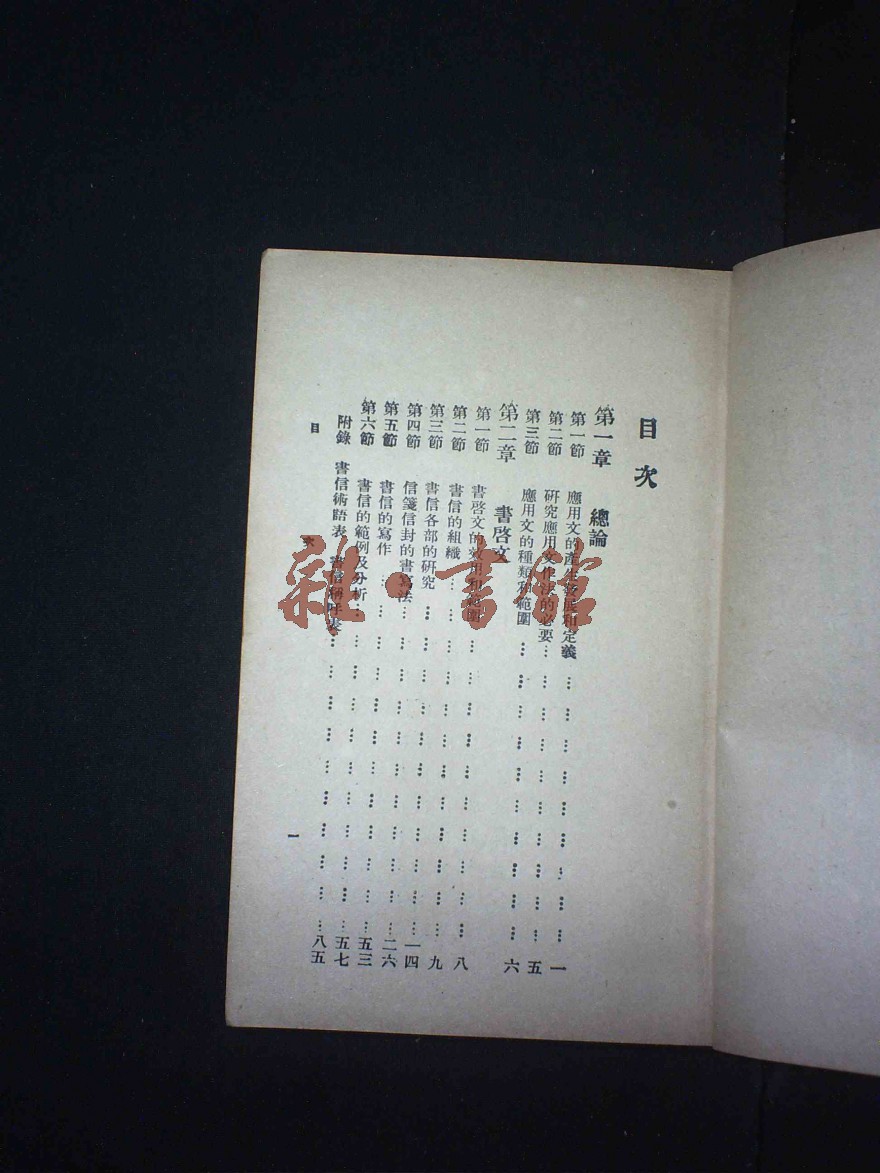 目次
第一章 總論
第一節 應用文的產生發展和定義……一
第二節 研究應用文作法的必要……五
第三節 應用文的種類和範圍……六
第二章 書啓文
第一節 書啓文的效用和範圍……八
第二節 書信的組織……九
第三節 書信各部的研究……一四
第四節 信箋信封的書寫法……二六
第五節 書信的寫作……五三
第六節 書信的範例及分析……五七
附錄 書信術語表 書信稱呼表……八五
目次
一
雜·書館